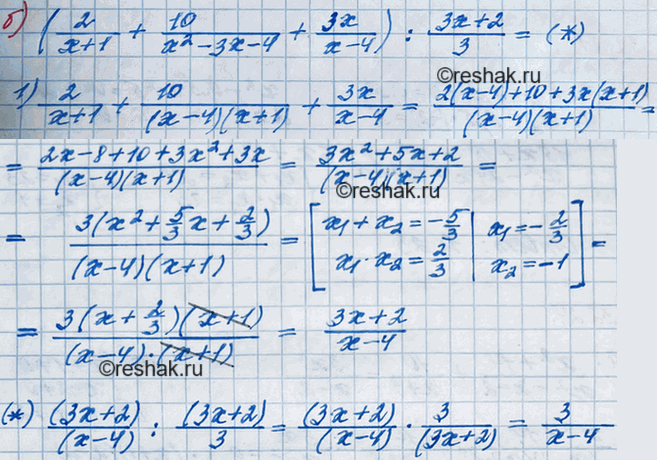 б) (2/(x+1) + 10/(x²-3x-4) + 3x/(x-4)) : (3x+2)/3 = (*)
©reshak.ru
1) 2/(x+1) + 10/((x-4)(x+1)) + 3x/(x-4) = (2(x-4)+10+3x(x+1))/((x-4)(x+1)) =
= (2x-8+10+3x²+3x)/((x-4)(x+1)) = (3x²+5x+2)/((x-4)(x+1)) =
©reshak.ru
= 3(x²+5/3x+2/3)/((x-4)(x+1)) = [x₁+x₂=-5/3 | x₁=-2/3
x₁·x₂=2/3 | x₂=-1] =
= 3(x+2/3)(x+1)/((x-4)·(x+1)) = (3x+2)/(x-4)
©reshak.ru
(*) (3x+2)/(x-4) : (3x+2)/3 = (3x+2)/(x-4) · 3/(3x+2) = 3/(x-4)
©reshak.ru